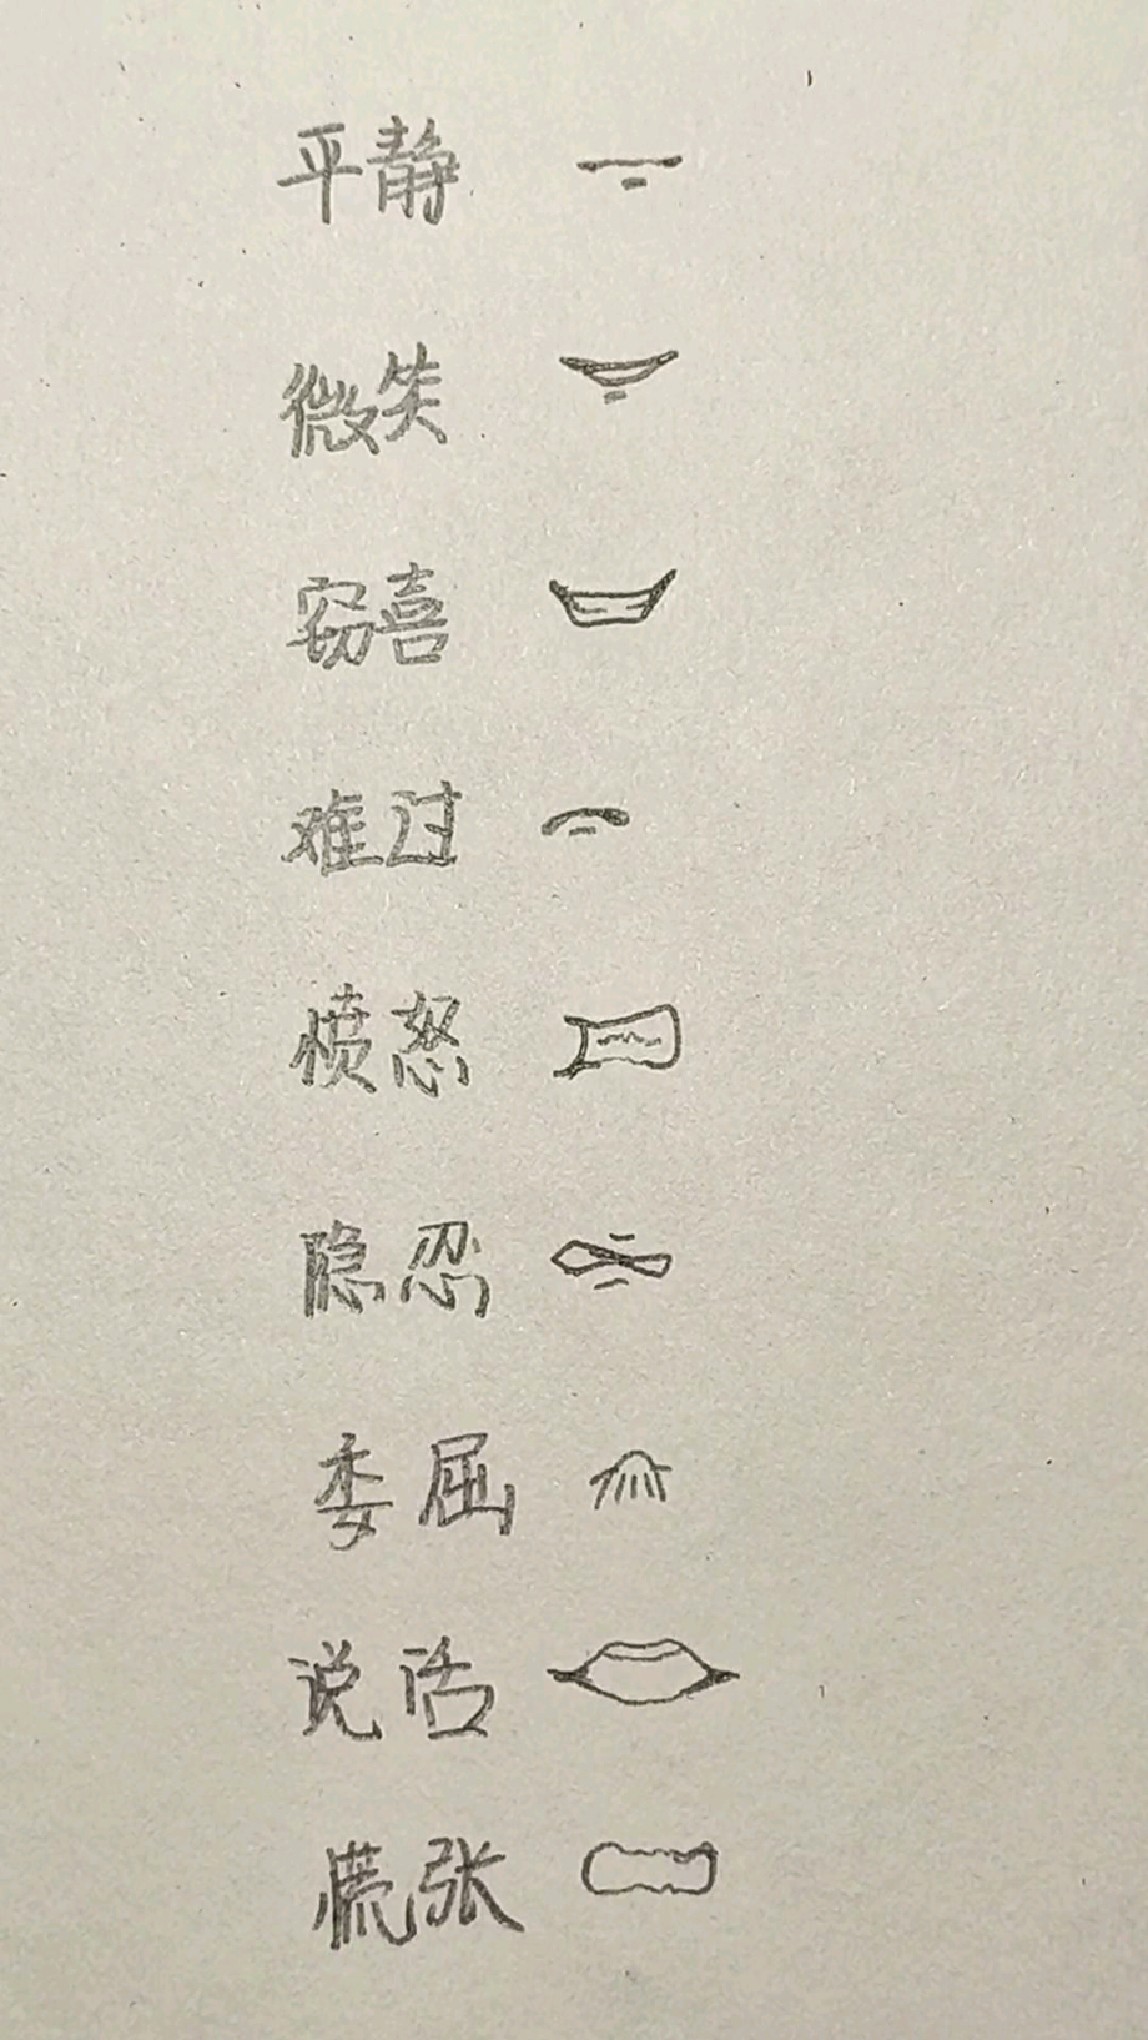 平静
微笑
窃喜
难过
愤怒
隐忍
委屈
说话
慌张